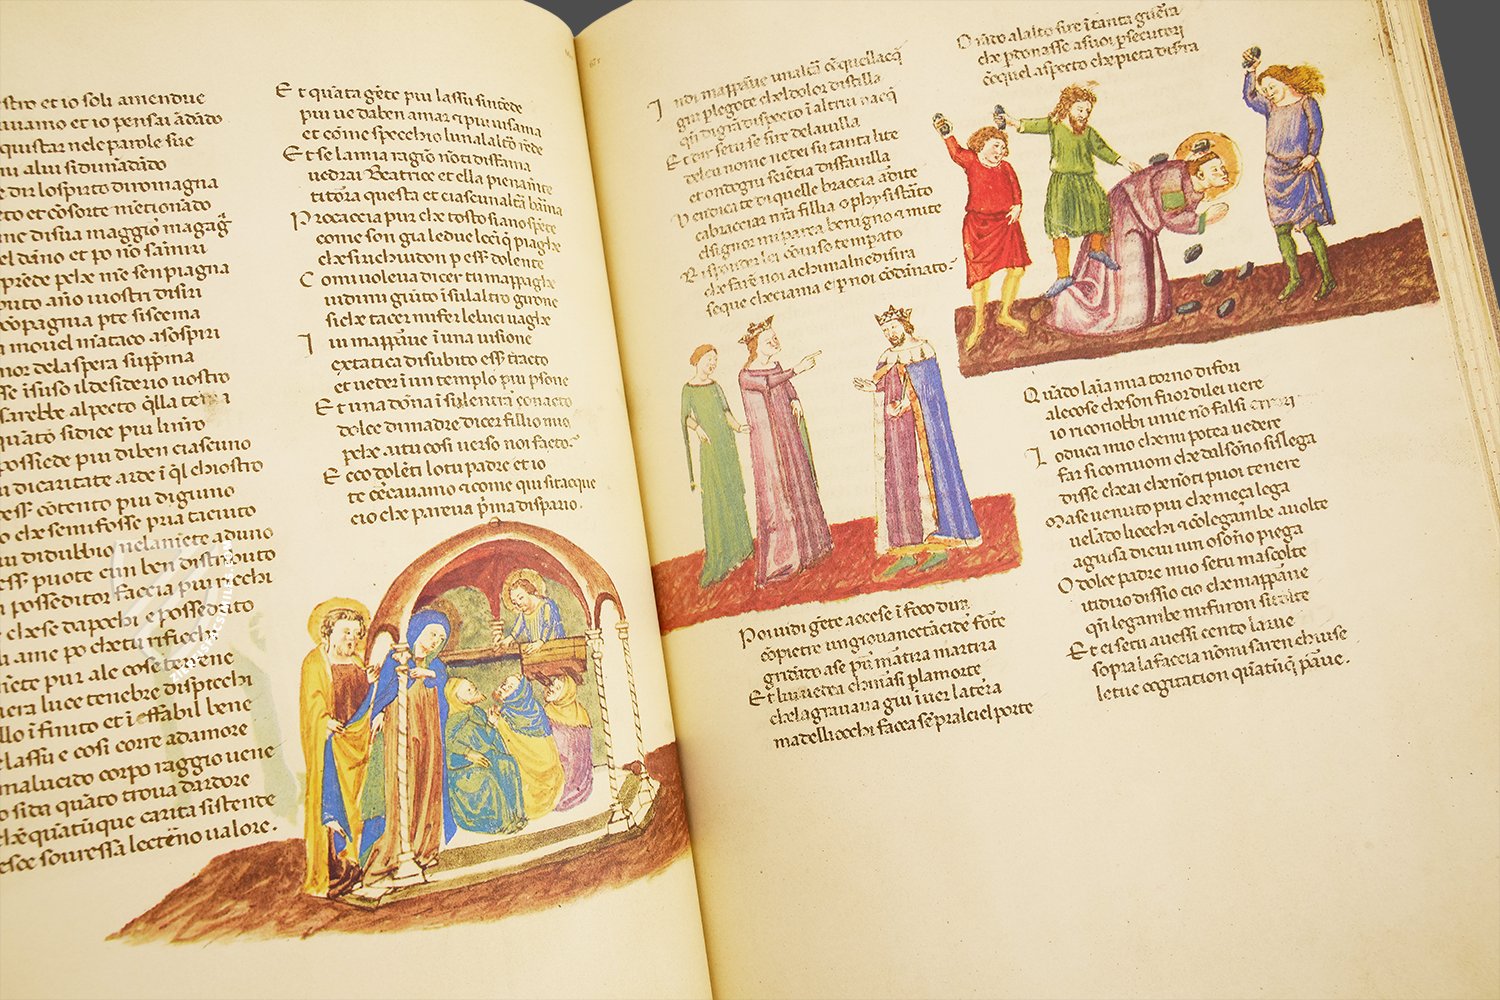 stro et io soli amendue
uiuamo et io pensai ādādo
quistar nele parole sue
si dimādādo
lo spirto di romagna
et cōsorte mētionādo
disua maggiō magagā
el dāno et po nō sāmiri
prēde pelre mē sen piagna
puto āno uostri disiri
cōpagnia pte si scema
mouel mātaco asospiri
mor dela spera suppma
sse ī suso il desiderio uostro
sarebbe al pecto qlla tema
quāto si dice piu li nr̄o
possiede piu di ben ciascuno
di caritate arde ī ql chiostro
cōtento piu digiuno
che semi fosse pria taciuto
di dubbio nela mēte aduno
esser puote cun ben distributo
posseditor faccia piu ricchi
chese da pochi e posseduto
ame po che tu rificchi
mēte pur ale cose terrene
uera luce tenebre dispicchi
llo ī finito et ī effabil bene
lassu e cosi corre adamore
ma lucido corpo raggio uene
si da quāto troua dardore
che quātūque carita si stende
cresce souressa lecterno ualore.
Et quāta gēte piu lassu sintēde
piu ue da ben amar et piu uisama
et cōme specchio lunalaltō rēde
Et se la mia ragiō nōti disfama
uedrai Beatrice et ella pienamēte
titōrra questa et ciascunaltā bāma
Procaccia pur che tosto siano spēte
come son gia le due le cīq piaghe
che si richiudon p essē dolente
Comuoleua dicer tu mappaghe
uidimi giūto īsulaltro girone
siche tacer mifer le luci uaghe
Iui mappāue ī una uisione
extatica di subito essē tracto
et ueder ī un templo piu psone
Et una dōna ī sulentrar conacto
dolce di madre dicer figliuol mio
pche aitu cosi uerso noi facto.
Ecco dolēti lo tu padre et io
te cercauamo et come qui si tacque
cio che pareua pma dispario.
Indi mappāue unaltā cō quellacq
giu plegote chel dolor distilla
qn di grā dispecto ī altrui nacq
Et dir setu se sire dela uilla
del cu nome uedei fu tanta lite
et ondogni sciētia disfauilla
Uendica te di quelle braccia ardite
cabracciar nrā figlia o physistrāto
elsignor mi parea benigno et mite
Risponder lei cōuiso tempato
che farē noi achi mal ne disira
se que che ci ama e p noi cōdānato.
Poi uidi gēte accese ī foco dira
cō pietre un giouanecta cide fōte
gridādo ase pur martira martira
Et lui uedea chinarsi p la morte
che lagrauaua gia ī uer la terra
ma delliocchi facea sēpre al ciel porte
Orādo alalto sire ī tanta guerra
che pdonasse asuoi psecutori
cōquel aspecto che pieta disrra
Quādo lāia mia torno di fori
ale cose che son fuor di lei uere
io riconobbi imie nō falsi errori
Lo duca mio che mi potea uedere
far si comuom che dal sōno si slega
disse che ai che nōti puoi tenere
Ma se uenuto piu che meça lega
uelādo liocchi et cō le gambe auolte
aguisa di cui uin o sōno piega
O dolce padre mio setu mascolte
io ti diro dissio cio che mappāue
qn le gambe mi furon si tolte
Et ei setu auessi cento larue
sopra la faccia nōmi sarien chiuse
le tue cogitation quātūq pāue.